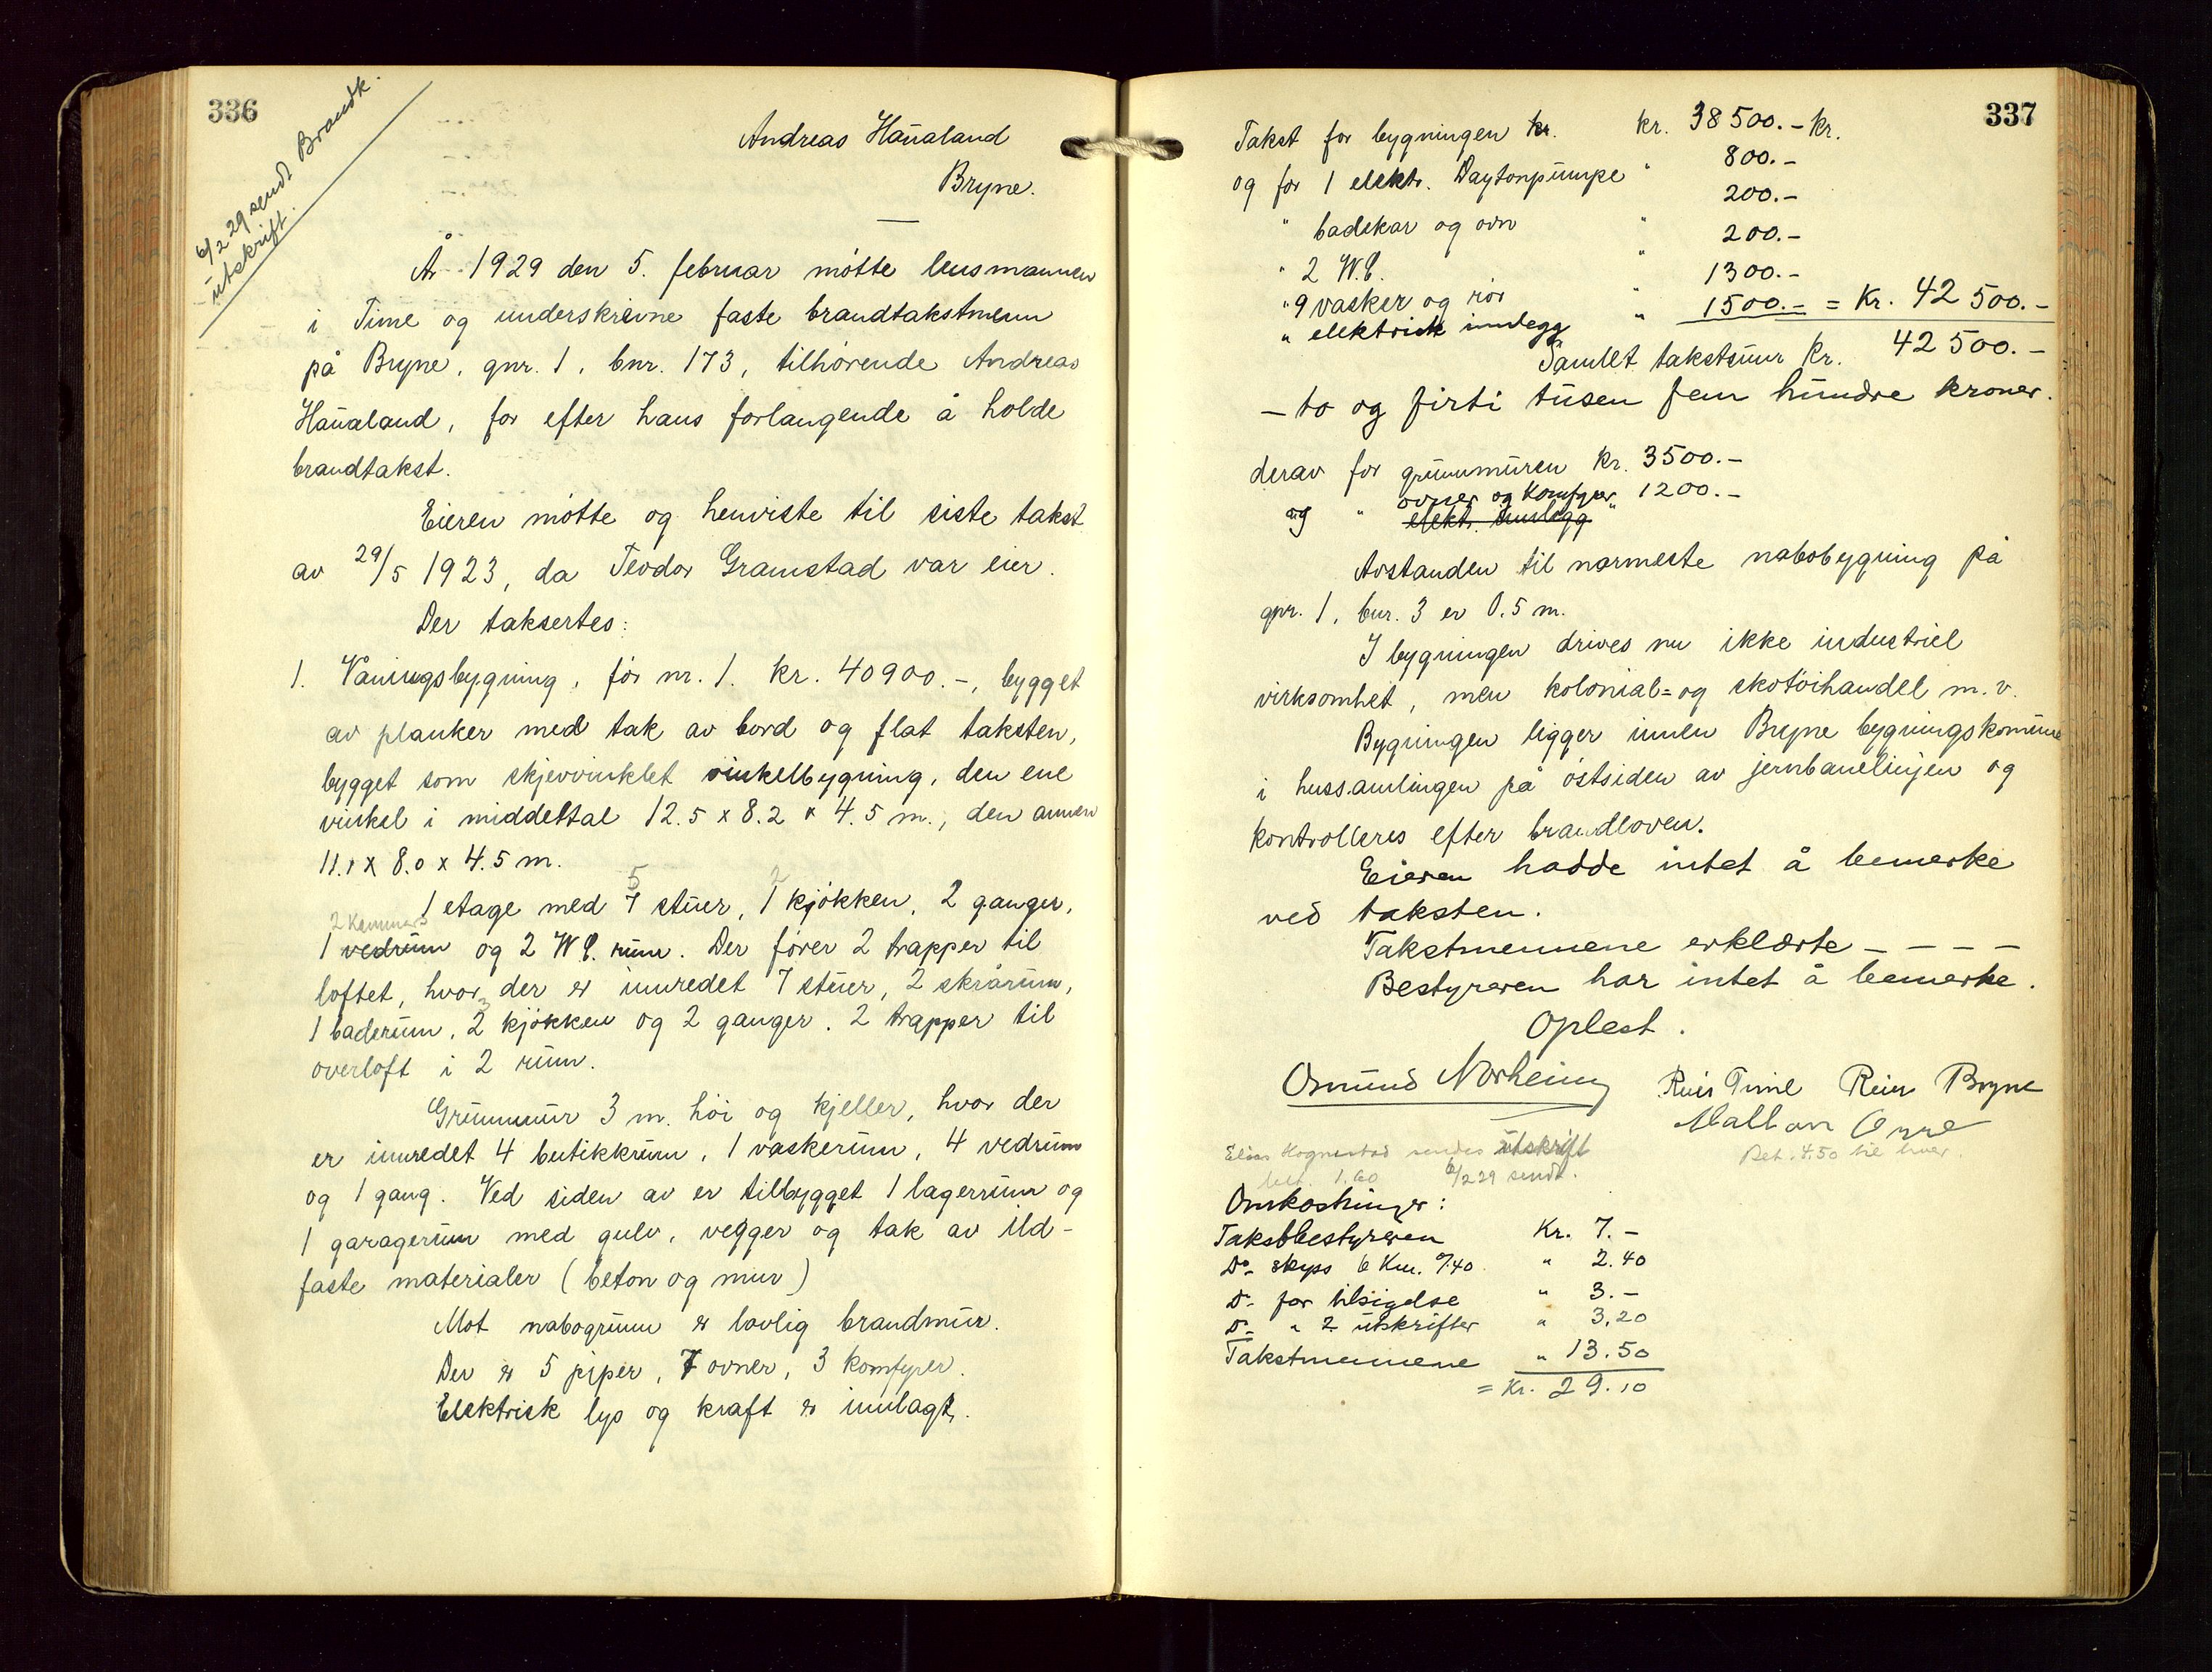 336
6/2 29 sendt Brandk.
utskrift.
Andreas Håualand
Bryne.
År 1929 den 5. februar møtte lensmannen
i Time og underskrevne faste brandtakstmenn
på Bryne, gnr. 1, bnr. 173, tilhørende Andreas
Håualand, for efter hans forlangende å holde
brandtakst.
Eieren møtte og henviste til siste takst
av 29/5 1923, da Teodor Gramstad var eier.
Der taksertes:
1. Våningsbygning, før nr. 1. kr. 40900.-, bygget
av planker med tak av bord og flat taksten,
bygget som skjevvinklet vinkelbygning, den ene
vinkel i middeltal 12.5 x 8.2 x 4.5 m., den annen
11.1 x 8.0 x 4.5 m.
5 2
1 etage med 7 stuer, 1 kjøkken, 2 ganger,
2 kammers
1 vedrum og 2 W.C. rum. Der fører 2 trapper til
loftet, hvor der er innredet 7 stuer, 2 skrårum,
1 baderum, 2 kjøkken og 2 ganger. 2 trapper til
overloft i 2 rum.
Grunnmur 3 m. høi og kjeller, hvor der
er innredet 4 butikkrum, 1 vaskerum, 4 vedrum
og 1 gang. Ved siden av er tilbygget 1 lagerrum og
1 garagerum med gulv, vegger og tak av ild-
faste materialer (beton og mur)
Mot nabogrunn er lovlig brandmur.
Der er 5 piper, 7 ovner, 3 komfyrer.
Elektrisk lys og kraft er innlagt.
337
Takst for bygningen kr. kr. 38500.- kr.
og for 1 elektr. Daytonpumpe " 800.-
" badekar og ovn " 200.-
" 2 W.C. " 200.-
" 9 vasker og rør " 1300.-
" elektrisk innlegg " 1500.- = Kr. 42500.-
Samlet takstsum kr. 42500.-
- to og firti tusen fem hundre kroner.
derav for grunnmuren kr. 3500.-
og " ovner og komfyrer " 1200.-
elektr. innlegg
Avstanden til nærmeste nabobygning på
gnr. 1, bnr. 3 er 0.5 m.
I bygningen drives nu ikke industriel
virksomhet, men kolonial= og skotøihandel m.v.
Bygningen ligger innen Bryne bygningskommune
i hussamlingen på østsiden av jernbanelinjen og
kontrolleres efter brandloven.
Eieren hadde intet å bemerke
ved taksten.
Takstmennene erklærte - - - -
Bestyreren har intet å bemerke.
Oplest.
Osmund Norheim Reier Time Reier Bryne
Elias Hognestad sendes utskrift Bet. 4.50 til hver.
bet. 1.60 6/2 29 sendt.
Omkostninger:
Takstbestyreren Kr. 7.-
Do- skyss 6 km. 0/40 " 2.40
Do- for tilsigelse " 3.-
Do- " 2 utskrifter " 3,20
Takstmennene " 13.50
= Kr. 29.10